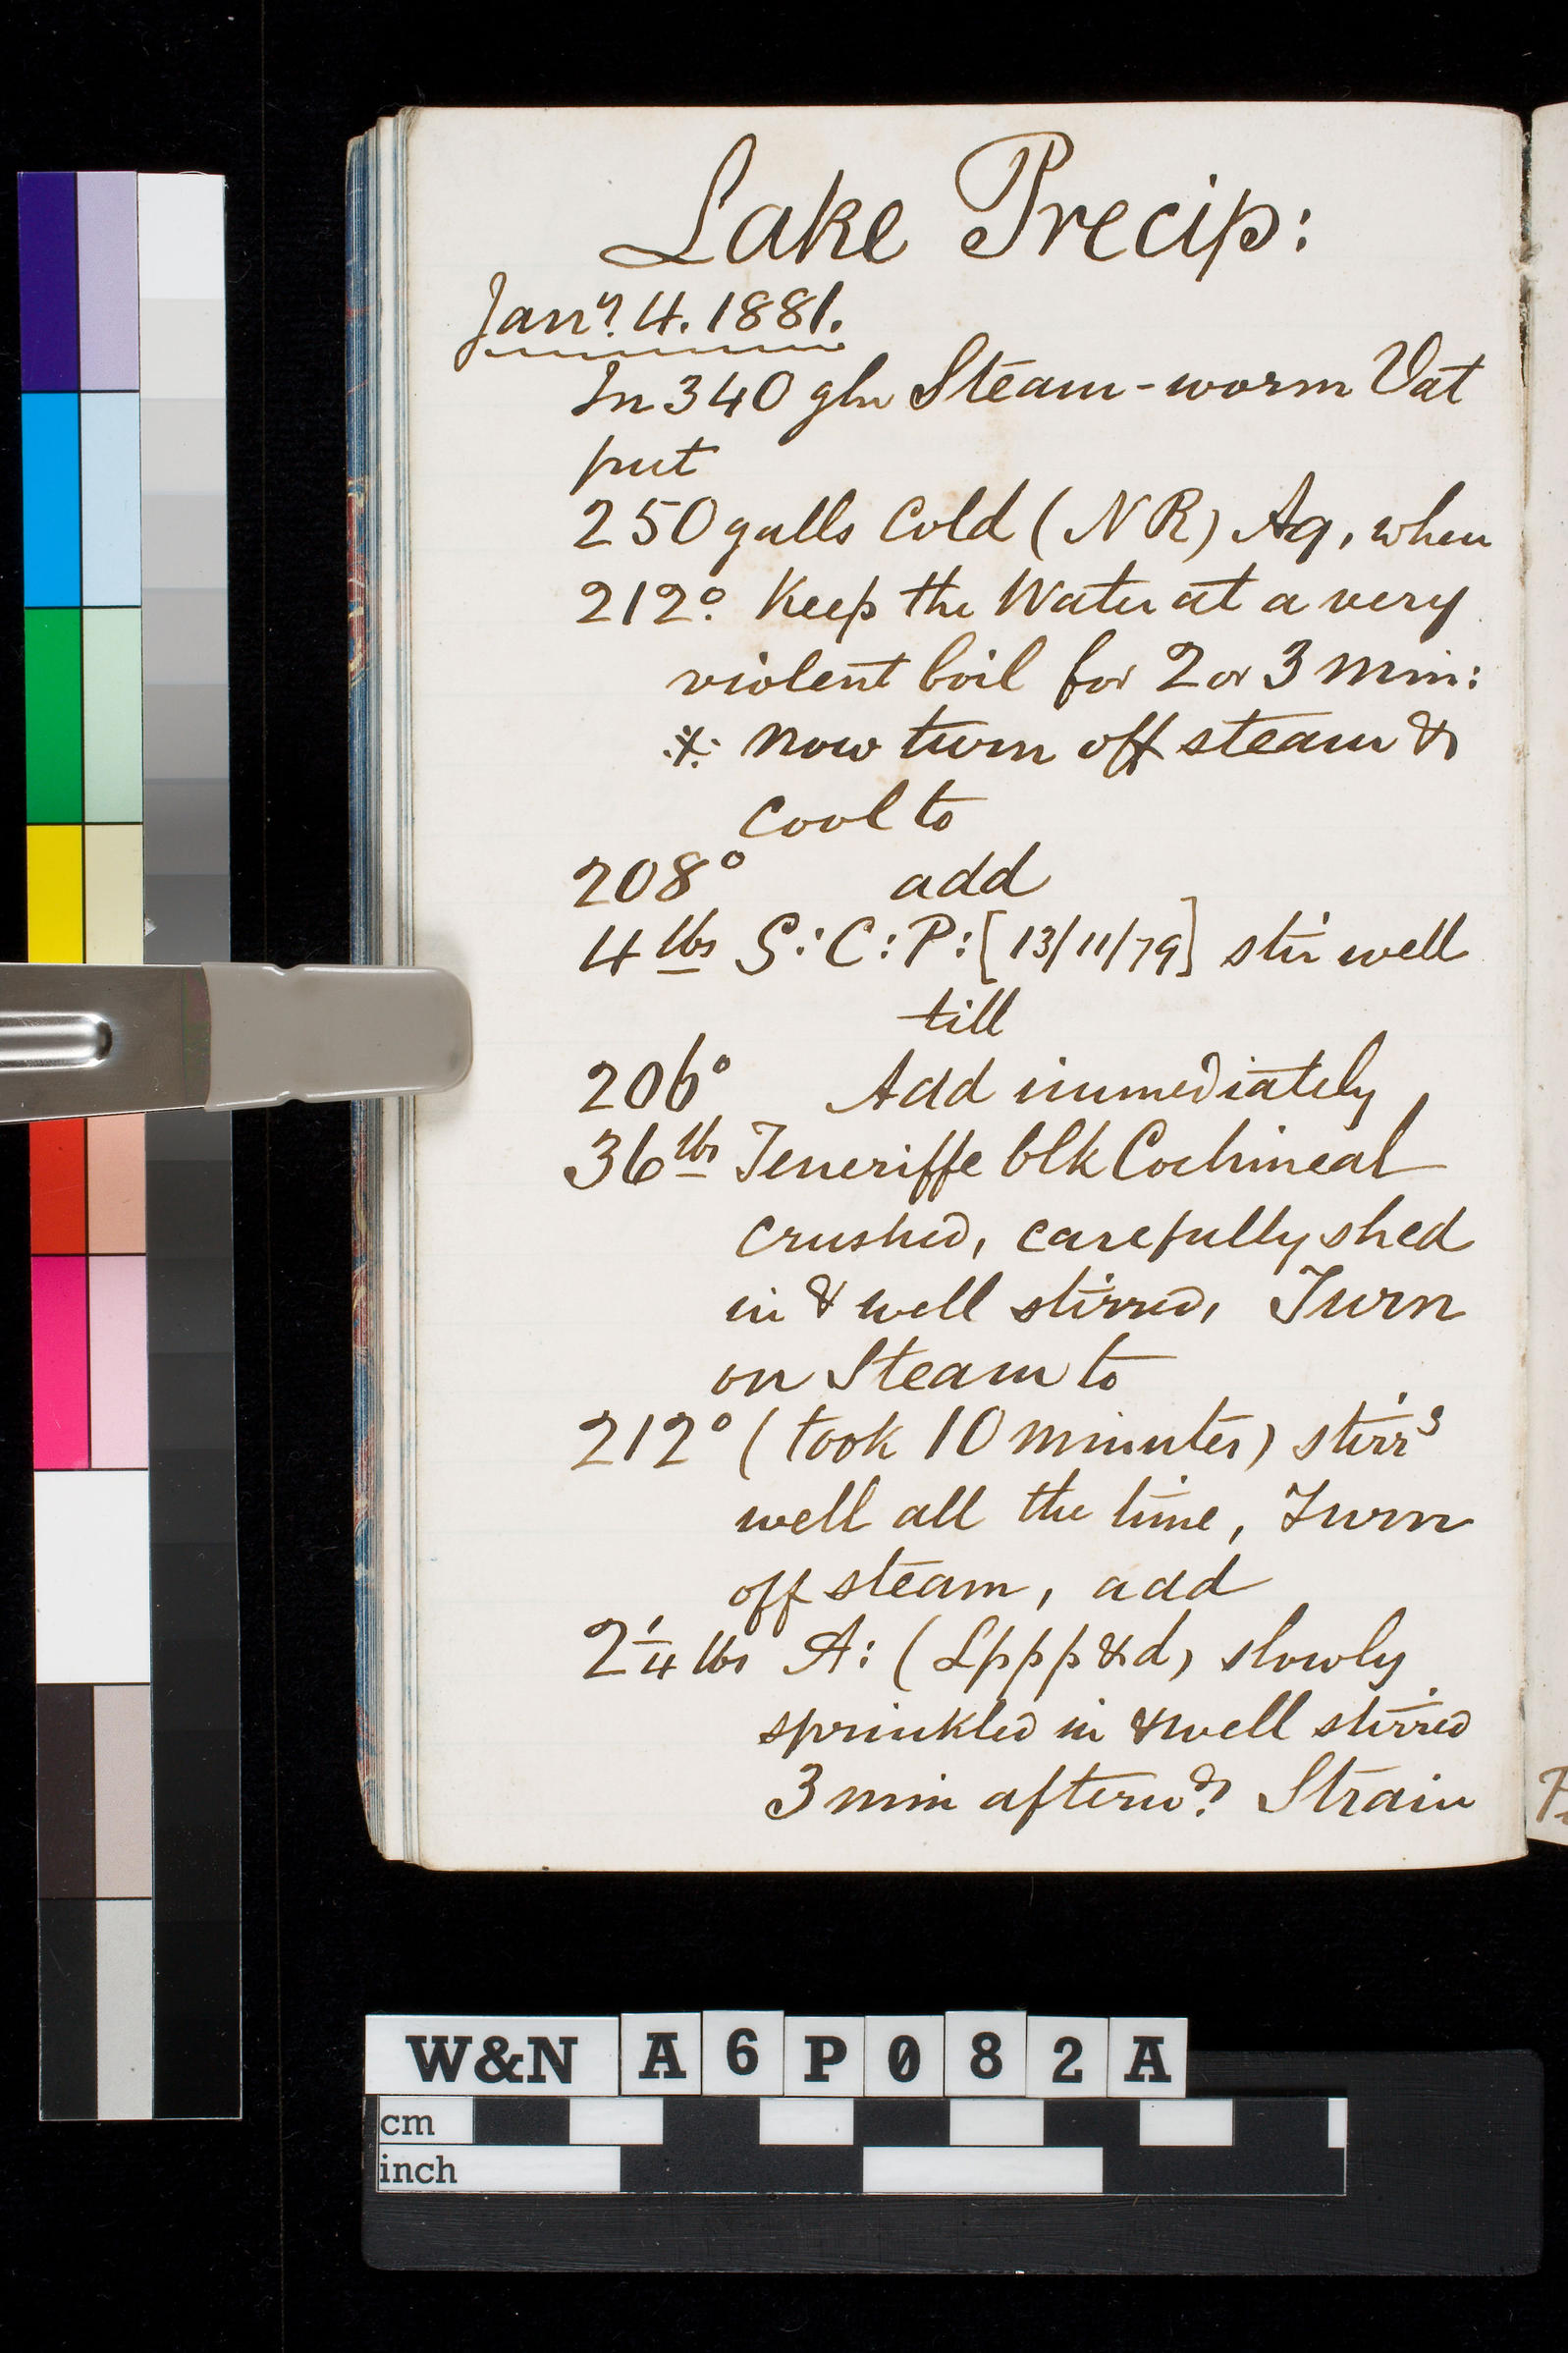 Lake Precip:
Jany. 4. 1881.
In 340 gln Steam-worm Vat
put
250 galls Cold (NR) Aq, when
212°. Keep the Water at a very
violent boil for 2 or 3 min:
※ now turn off steam &
cool to
208° add
4 lbs S:C:P:[13/11/79] stir well
till
206° Add immediately,
36 lbs Teneriffe blk Cochineal
crushed, carefully shed
in & well stirred, Turn
on Steam to
212° (took 10 minutes) stirrg
well all the time, Turn
off steam, add
2¼ lbs A: (Lppp&d) slowly
sprinkled in & well stirred
3 min afterwds. Strain
W&N A6P082A
cm
inch